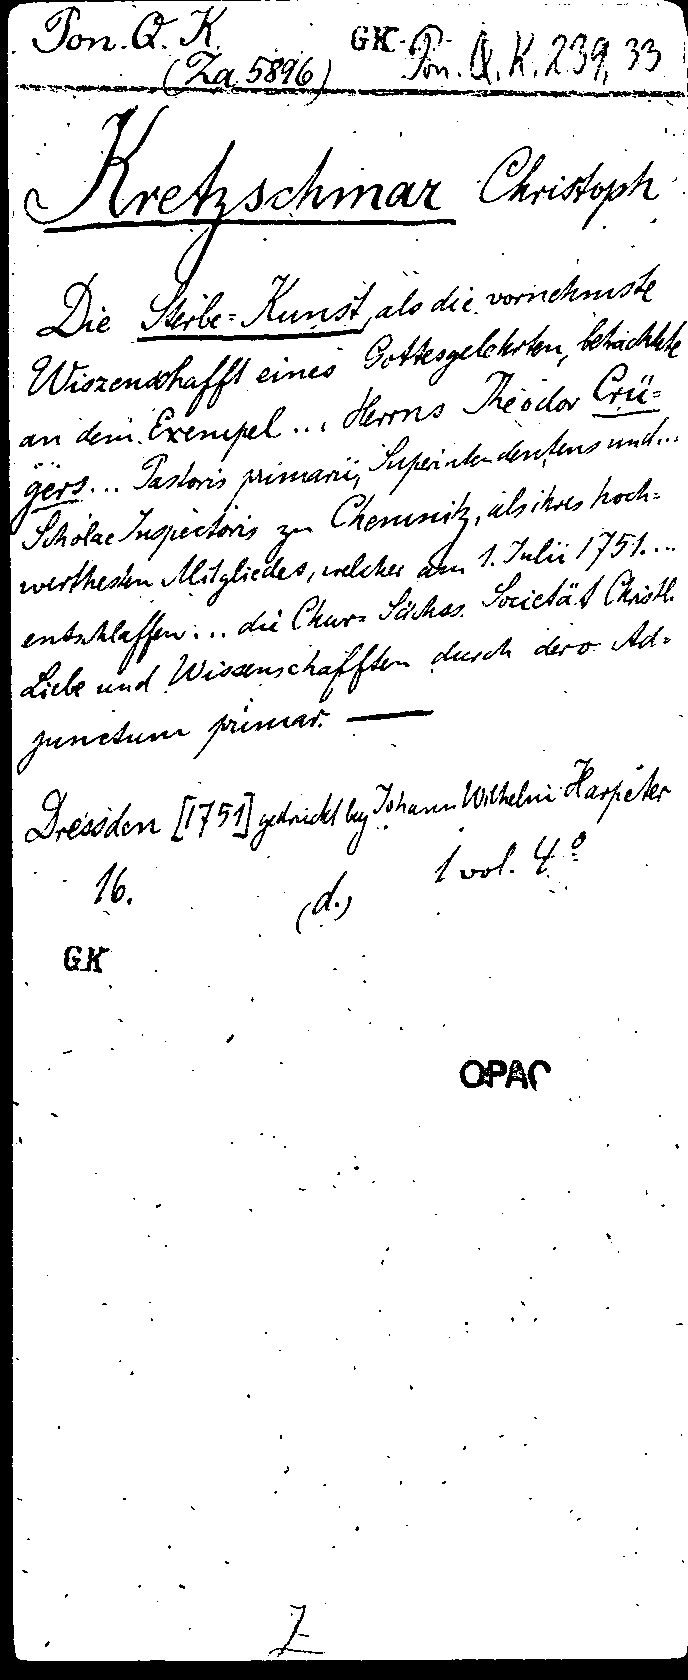 Pon. Q. K. GK Pon. Q. K. 239, 33
(Za 5896)
Kretzschmar Christoph
Die Sterbe-Kunst, als die vornehmste
Wiszenschafft eines Gottesgelehrten, betrachtete
an dem Exempel ... Herrns Theodor Crü-
gers ... Pastoris primarii, Superintendentens und ...
Scholae Inspectoris zu Chemnitz, als ihres hoch-
werthesten Mitgliedes, welcher am 1. Julii 1751. ...
entschlaffen ... die Chur-Sächss. Societät Christl.
Liebe und Wissenschafften durch dero Ad-
junctum primar. —
Dresden [1751] gedruckt bey Johann Wilhelm Harpeter
16. (d.) 1 vol. 4°
GK
OPAC
Z